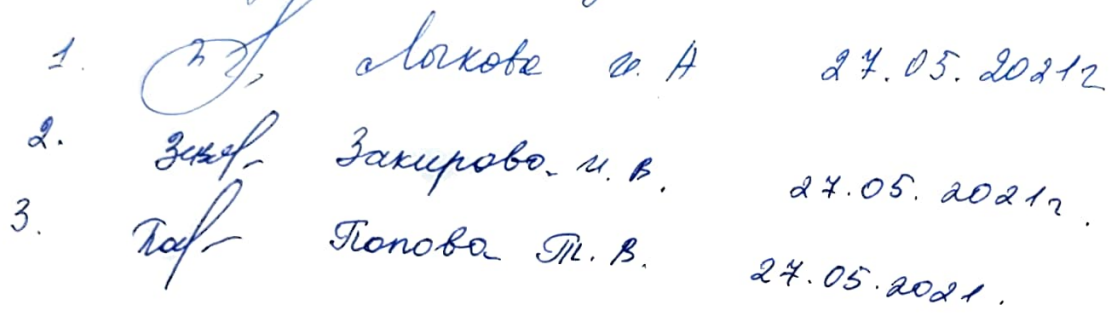 1. Лыкова И. А 27.05.2021г
2. Закирова И. В. 27.05.2021г.
3. Попова Т. В. 27.05.2021.